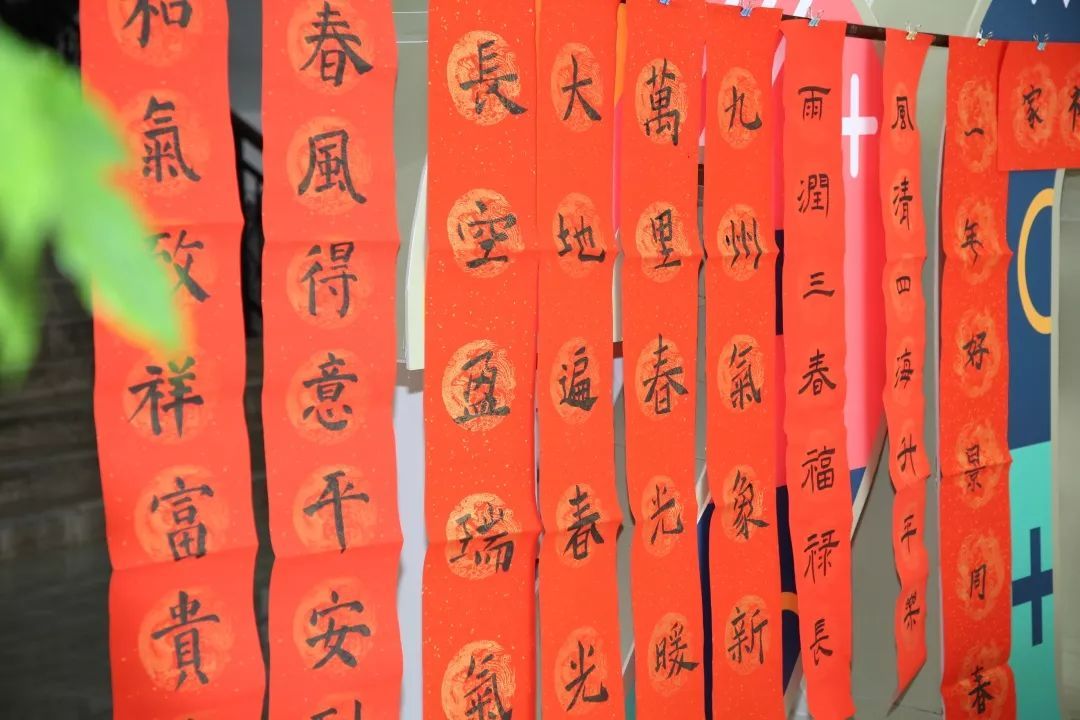 家
一年好景同春
風清四海升平樂
雨潤三春福祿長
九州氣象新
萬里春光暖
大地遍春光
長空盈瑞氣
春風得意平安
和氣致祥富貴